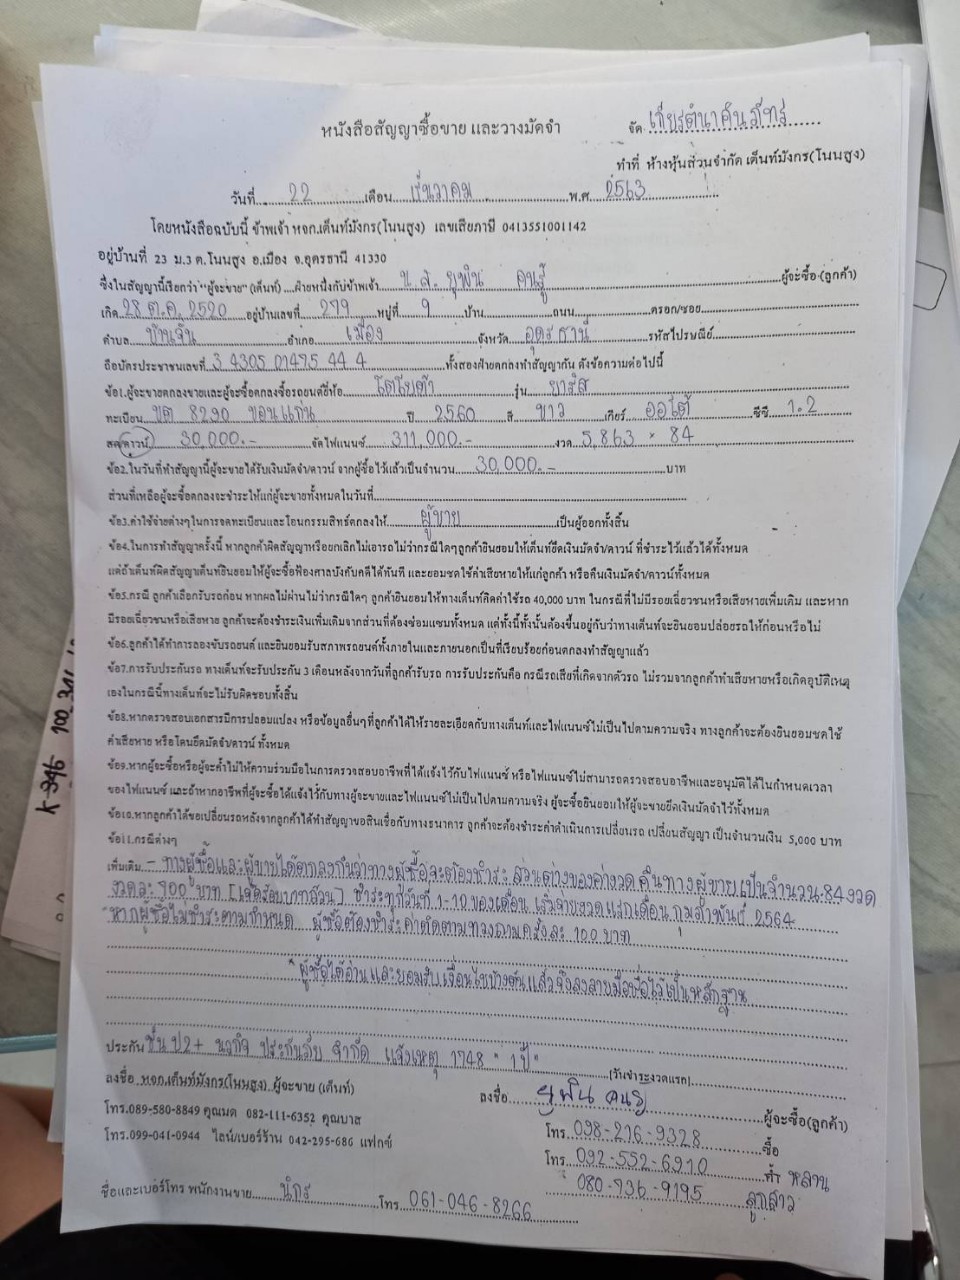 หนังสือสัญญาซื้อขาย และวางมัดจำ
จัด เกียรตินาคินภัทร
ทำที่ ห้างหุ้นส่วนจำกัด เต็นท์มังกร(โนนสูง)
วันที่ 22 เดือน ธันวาคม พ.ศ 2563
โดยหนังสือฉบับนี้ ข้าพเจ้า หจก.เต็นท์มังกร(โนนสูง) เลขเสียภาษี 0413551001142
อยู่บ้านที่ 23 ม.3 ต.โนนสูง อ.เมือง จ.อุดรธานี 41330
ซึ่งในสัญญานี้เรียกว่า"ผู้จะขาย"(เต็นท์)....ฝ่ายหนึ่งกับข้าพเจ้า น.ส. ยุพิน คนรู้ ผู้จะซื้อ(ลูกค้า)
เกิด 28 ต.ค. 2520 อยู่บ้านเลขที่ 279 หมู่ที่ 9 บ้าน ถนน ตรอก/ซอย
ตำบล บ้านจั่น อำเภอ เมือง จังหวัด อุดรธานี รหัสไปรษณีย์
ถือบัตรประชาชนเลขที่ 3 4305 01495 44 4 ทั้งสองฝ่ายตกลงทำสัญญากัน ดังข้อความต่อไปนี้
ข้อ1.ผู้จะขายตกลงขายและผู้จะซื้อตกลงซื้อรถยนต์ยี่ห้อ โตโยต้า รุ่น ยาริส
ทะเบียน ขต 8290 ขอนแก่น ปี 2560 สี ขาว เกียร์ ออโต้ ซีซี 1.2
สด/ดาวน์ 30,000.- จัดไฟแนนซ์ 311,000.- งวด 5,863 × 84
ข้อ2.ในวันที่ทำสัญญานี้ผู้จะขายได้รับเงินมัดจำ/ดาวน์ จากผู้ซื้อไว้แล้วเป็นจำนวน 30,000.- บาท
ส่วนที่เหลือผู้จะซื้อตกลงจะชำระให้แก่ผู้จะขายทั้งหมดในวันที่
ข้อ3.ค่าใช้จ่ายต่างๆในการจดทะเบียนและโอนกรรมสิทธ์ตกลงให้ ผู้ขาย เป็นผู้ออกทั้งสิ้น
ข้อ4.ในการทำสัญญาครั้งนี้ หากลูกค้าผิดสัญญาหรือยกเลิกไม่เอารถไม่ว่ากรณีใดๆลูกค้ายินยอมให้เต็นท์ยึดเงินมัดจำ/ดาวน์ ที่ชำระไว้แล้วได้ทั้งหมด
แต่ถ้าเต็นท์ผิดสัญญาเต็นท์ยินยอมให้ผู้จะซื้อฟ้องศาลบังคับคดีได้ทันที และยอมชดใช้ค่าเสียหายให้แก่ลูกค้า หรือคืนเงินมัดจำ/ดาวน์ทั้งหมด
ข้อ5.กรณี ลูกค้าเลือกรับรถก่อน หากผลไม่ผ่านไม่ว่ากรณีใดๆ ลูกค้ายินยอมให้ทางเต็นท์คิดค่าใช้รถ 40,000 บาท ในกรณีที่ไม่มีรอยเฉี่ยวชนหรือเสียหายเพิ่มเติม และหาก
มีรอยเฉี่ยวชนหรือเสียหาย ลูกค้าจะต้องชำระเงินเพิ่มเติมจากส่วนที่ต้องซ่อมแซมทั้งหมด แต่ทั้งนี้ทั้งนั้นต้องขึ้นอยู่กับว่าทางเต็นท์จะยินยอมปล่อยรถให้ก่อนหรือไม่
ข้อ6.ลูกค้าได้ทำการลองขับรถยนต์ และยินยอมรับสภาพรถยนต์ทั้งภายในและภายนอกเป็นที่เรียบร้อยก่อนตกลงทำสัญญาแล้ว
ข้อ7.การรับประกันรถ ทางเต็นท์จะรับประกัน 3 เดือนหลังจากวันที่ลูกค้ารับรถ การรับประกันคือ กรณีรถเสียที่เกิดจากตัวรถ ไม่รวมจากลูกค้าทำเสียหายหรือเกิดอุบัติเหตุ
เองในกรณีนี้ทางเต็นท์จะไม่รับผิดชอบทั้งสิ้น
ข้อ8.หากตรวจสอบเอกสารมีการปลอมแปลง หรือข้อมูลอื่นๆที่ลูกค้าได้ให้รายละเอียดกับทางเต็นท์และไฟแนนซ์ไม่เป็นไปตามความจริง ทางลูกค้าจะต้องยินยอมชดใช้
ค่าเสียหาย หรือโดนยึดมัดจำ/ดาวน์ ทั้งหมด
ข้อ9.หากผู้จะซื้อหรือผู้จะค้ำไม่ให้ความร่วมมือในการตรวจสอบอาชีพที่ได้แจ้งไว้กับไฟแนนซ์ หรือไฟแนนซ์ไม่สามารถตรวจสอบอาชีพและอนุมัติได้ในกำหนดเวลา
ของไฟแนนซ์ และถ้าหากอาชีพที่ผู้จะซื้อได้แจ้งไว้กับทางผู้จะขายและไฟแนนซ์ไม่เป็นไปตามความจริง ผู้จะซื้อยินยอมให้ผู้จะขายยึดเงินมัดจำไว้ทั้งหมด
ข้อ10.หากลูกค้าได้ขอเปลี่ยนรถหลังจากลูกค้าได้ทำสัญญาขอสินเชื่อกับทางธนาคาร ลูกค้าจะต้องชำระค่าดำเนินการเปลี่ยนรถ เปลี่ยนสัญญา เป็นจำนวนเงิน 5,000 บาท
ข้อ11.กรณีต่างๆ
เพิ่มเติม - ทางผู้ซื้อและผู้ขายได้ตกลงกันว่าทางผู้ซื้อจะต้องชำระส่วนต่างของค่างวด คืนทางผู้ขายเป็นจำนวน 84 งวด
งวดละ 700 บาท [เจ็ดร้อยบาทถ้วน] ชำระทุกวันที่ 1-10 ของเดือน เริ่มจ่ายงวดแรกเดือน กุมภาพันธ์ 2564
หากผู้ซื้อไม่ชำระตามกำหนด ผู้ซื้อต้องชำระค่าติดตามทวงถามครั้งละ 100 บาท
* ผู้ซื้อได้อ่านและยอมรับเงื่อนไขข้างต้นแล้วจึงลงลายมือชื่อไว้เป็นหลักฐาน
ประกัน ชั้น ป2+ นวกิจ ประกันภัย จำกัด แจ้งเหตุ 1748 " 1 ปี " (วันชำระงวดแรก)
ลงชื่อ หจก.เต็นท์มังกร(โนนสูง) ผู้จะขาย (เต็นท์)
ลงชื่อ ยุพิน คนรู้ ผู้จะซื้อ(ลูกค้า)
โทร.089-580-8849 คุณมด 082-111-6352 คุณบาส
โทร. 098-216-9328 ซื้อ
โทร.099-041-0944 ไลน์/เบอร์ร้าน 042-295-686 แฟกซ์
โทร 092-552-6910 ค้ำ หลาน
080-736-9195 ลูกสาว
ชื่อและเบอร์โทร พนักงานขาย โทร 061-046-8266